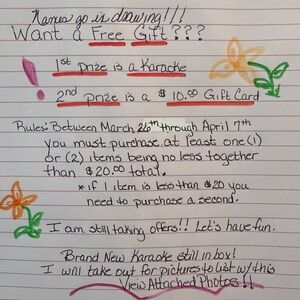 Names go in drawing!!!
Want a Free Gift???
1st prize is a Karaoke
2nd prize is a $10.00 Gift Card
Rules: Between March 26th through April 7th
you must purchase at least one (1)
or (2) items being no less together
than $20.00 total.
*if 1 item is less than $20 you
need to purchase a second.
I am still taking offers!! Let's have fun.
Brand New Karaoke still in box!
I will take out for pictures to list w/ this
View Attached Photos!!